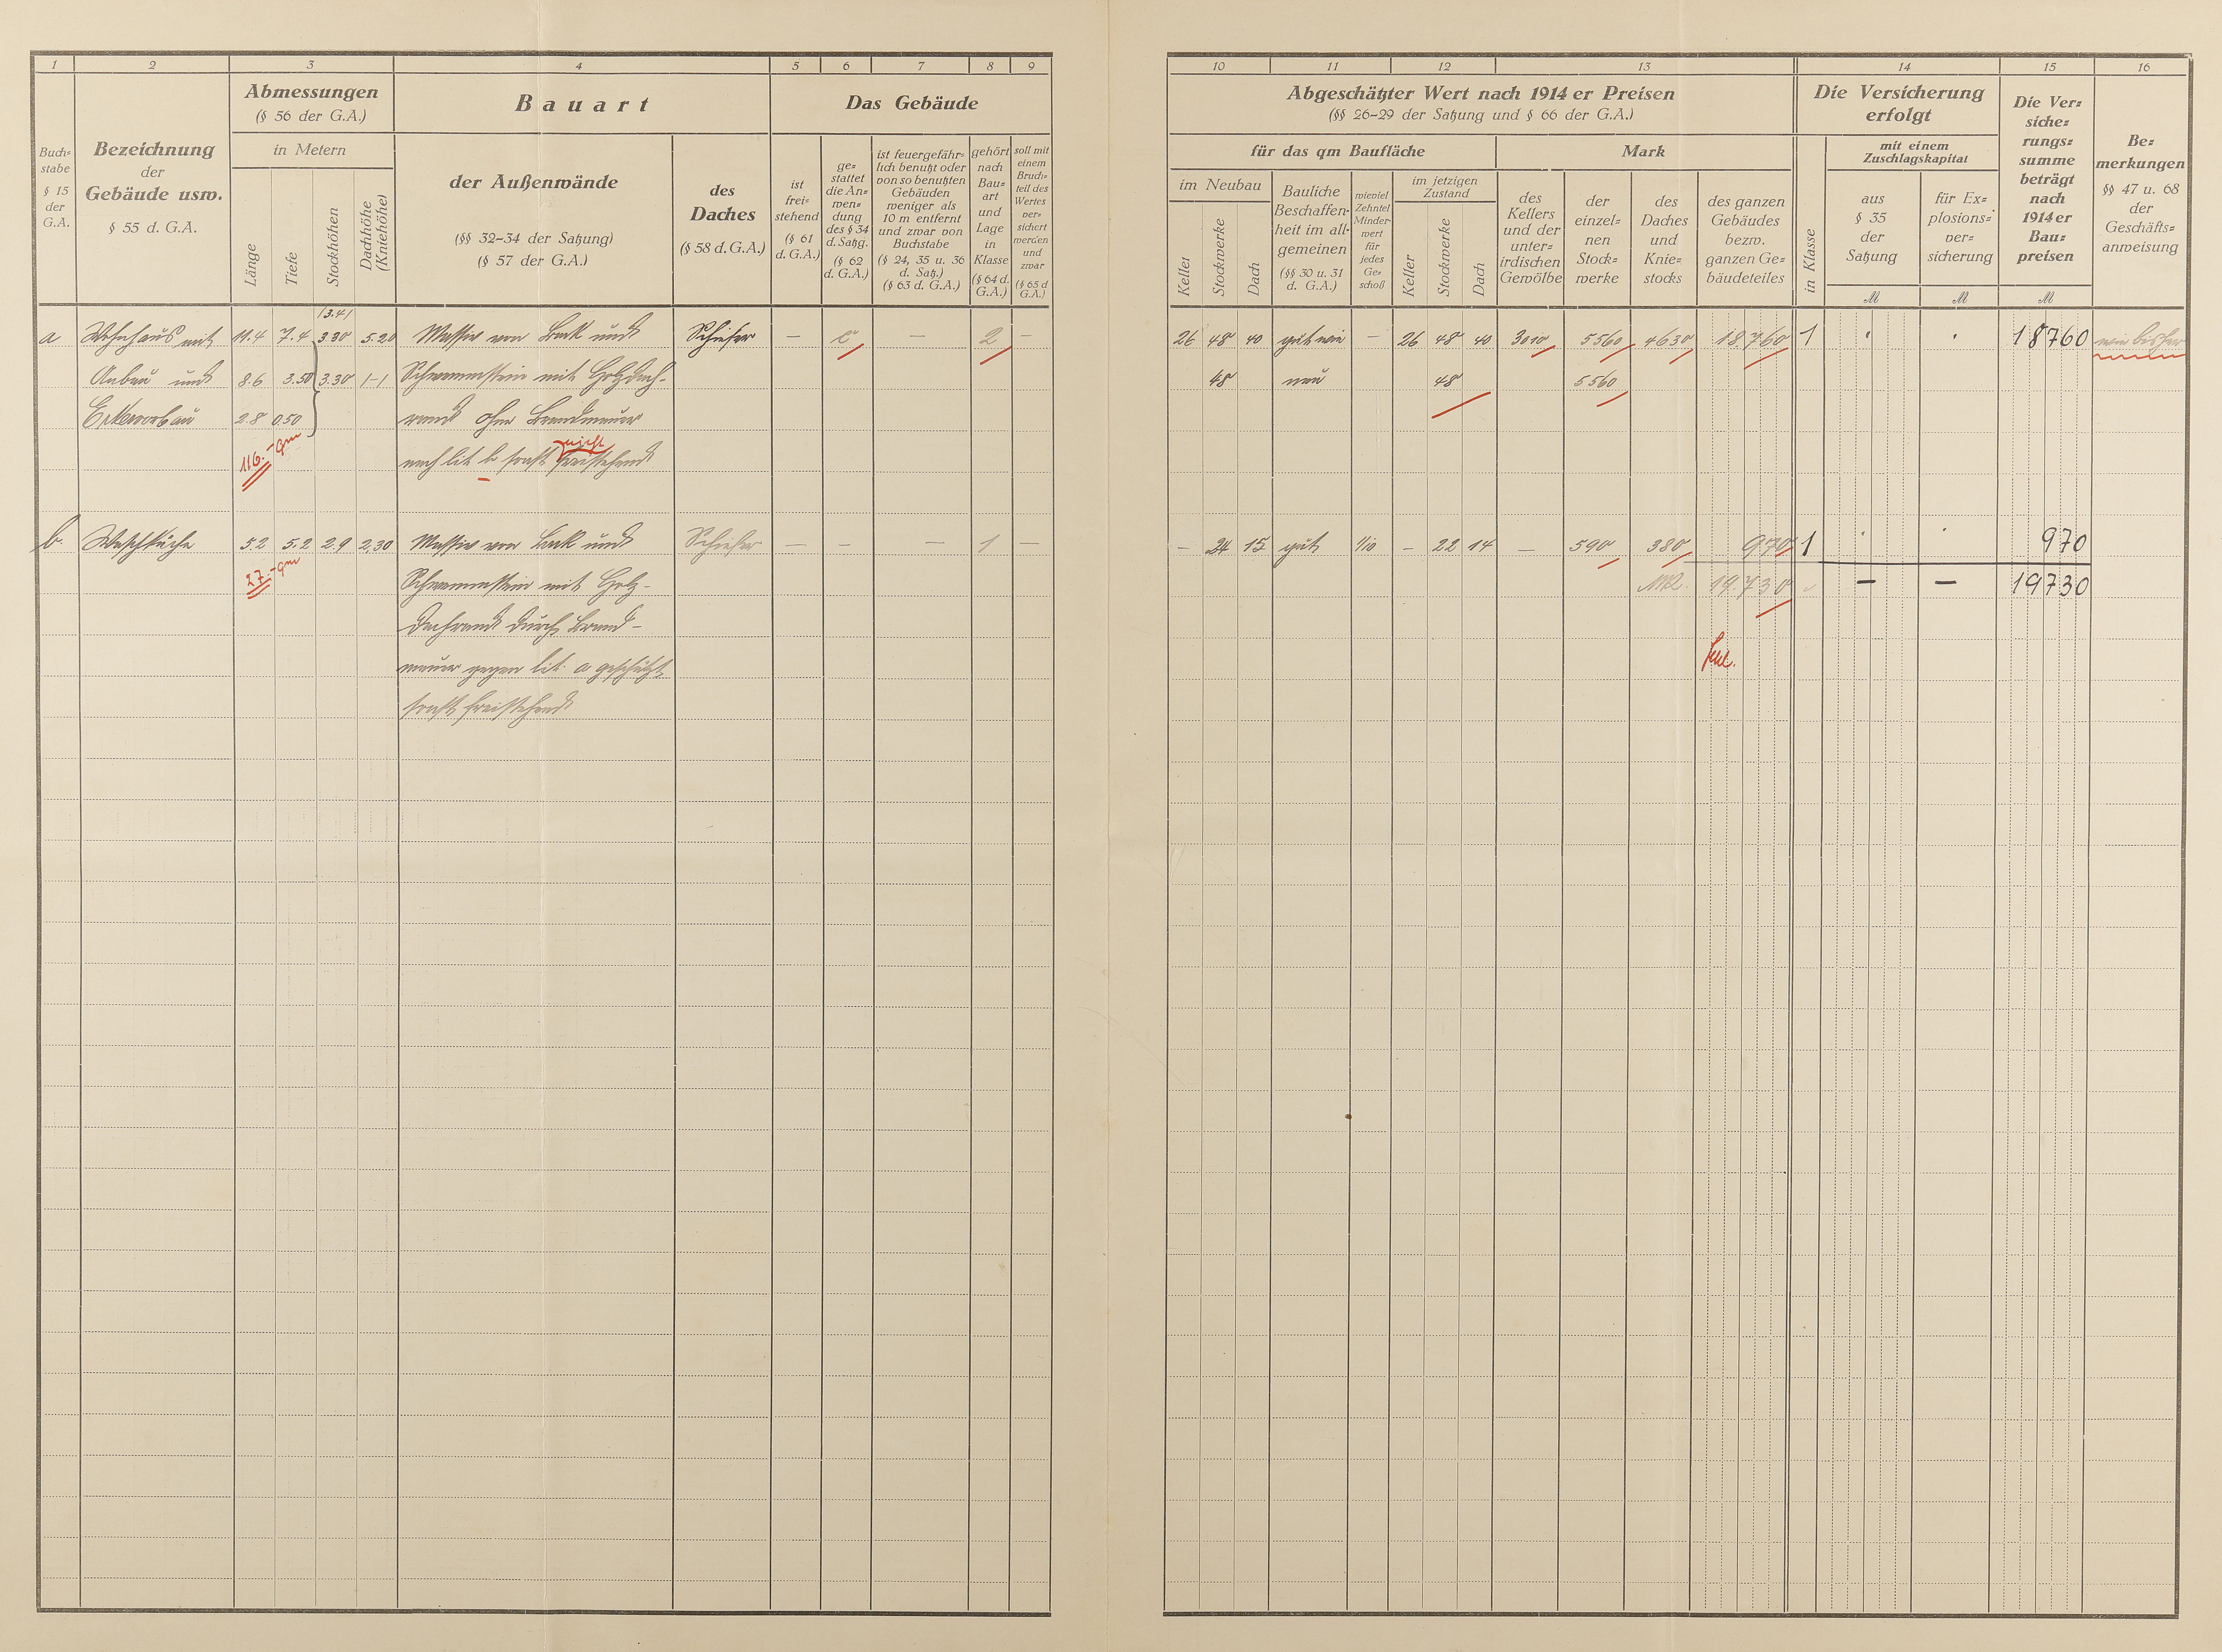 1 2 3 4 5 6 7 8 9
Abmessungen
(§ 56 der G.A.)
Bauart
Das Gebäude
Buch=
stabe
§ 15
der
G.A.
Bezeichnung
der
Gebäude usw.
§ 55 d. G.A.
in Metern
Länge
Tiefe
Stockhöhen
Dachhöhe
(Kniehöhe)
der Außenwände
(§§ 32-34 der Satzung)
(§ 57 der G.A.)
des
Daches
(§ 58 d. G.A.)
ist
frei=
stehend
(§ 61
d. G.A.)
ge=
stattet
die An=
wen=
dung
des § 34
d. Satzg.
(§ 62
d. G.A.)
ist feuergefähr=
lich benutzt oder
von so benutzten
Gebäuden
weniger als
10 m entfernt
und zwar von
Buchstabe
(§ 24, 35 u. 36
d. Satz.)
(§ 63 d. G.A.)
gehört
nach
Bau=
art
und
Lage
in
Klasse
(§ 64 d.
G.A.)
soll mit
einem
Bruch=
teil des
Wertes
ver=
sichert
werden
und
zwar
(§ 65 d
G.A.)
(3.4)
a Wohnhaus mit 11.4 7.4 3.30 5.20 Massiv von Back und Schiefer — — 2 —
Anbau und 8.6 3.50 3.30 1-1 Schwemmstein mit Holzdach-
Erkervorbau 2.8 0.50 rand ohne Brandmauer
116.- qm
nach lit b sonst nicht freistehend
b. Waschküche 5.2 5.2 2.9 2,30 Massiv von Back und Schiefer — — — 1 —
27.- qm
Schwemmstein mit Holz-
dachrand durch Brand-
mauer gegen lit. a geschützt
sonst freistehend
10 11 12 13 14 15 16
Abgeschätzter Wert nach 1914 er Preisen
(§§ 26-29 der Satzung und § 66 der G.A.)
für das qm Baufläche
Mark
im Neubau
Keller
Stockwerke
Dach
Bauliche
Beschaffen-
heit im all-
gemeinen
(§§ 30 u. 31
d. G.A.)
wieviel
Zehntel
Minder=
wert
für
jedes
Ge=
schoß
im jetzigen
Zustand
Keller
Stockwerke
Dach
des
Kellers
und der
unter=
irdischen
Gewölbe
der
einzel=
nen
Stock=
werke
des
Daches
und
Knie=
stocks
des ganzen
Gebäudes
bezw.
ganzen Ge=
bäudeteiles
Die Versicherung
erfolgt
in Klasse
mit einem
Zuschlagskapital
aus
§ 35
der
Satzung
M
für Ex=
plosions=
ver=
sicherung
M
Die Ver=
siche=
rungs=
summe
beträgt
nach
1914 er
Bau=
preisen
M
Be=
merkungen
§§ 47 u. 68
der
Geschäfts=
anweisung
26 48 40 gut wie — 26 48 40 3010 5560 4630 18.760 1 18760 wie bisher
48 neu 48 5560
— 24 15 gut 1/10 — 22 14 — 590 380 970 1 970
Mk. 19.730 — — 19730